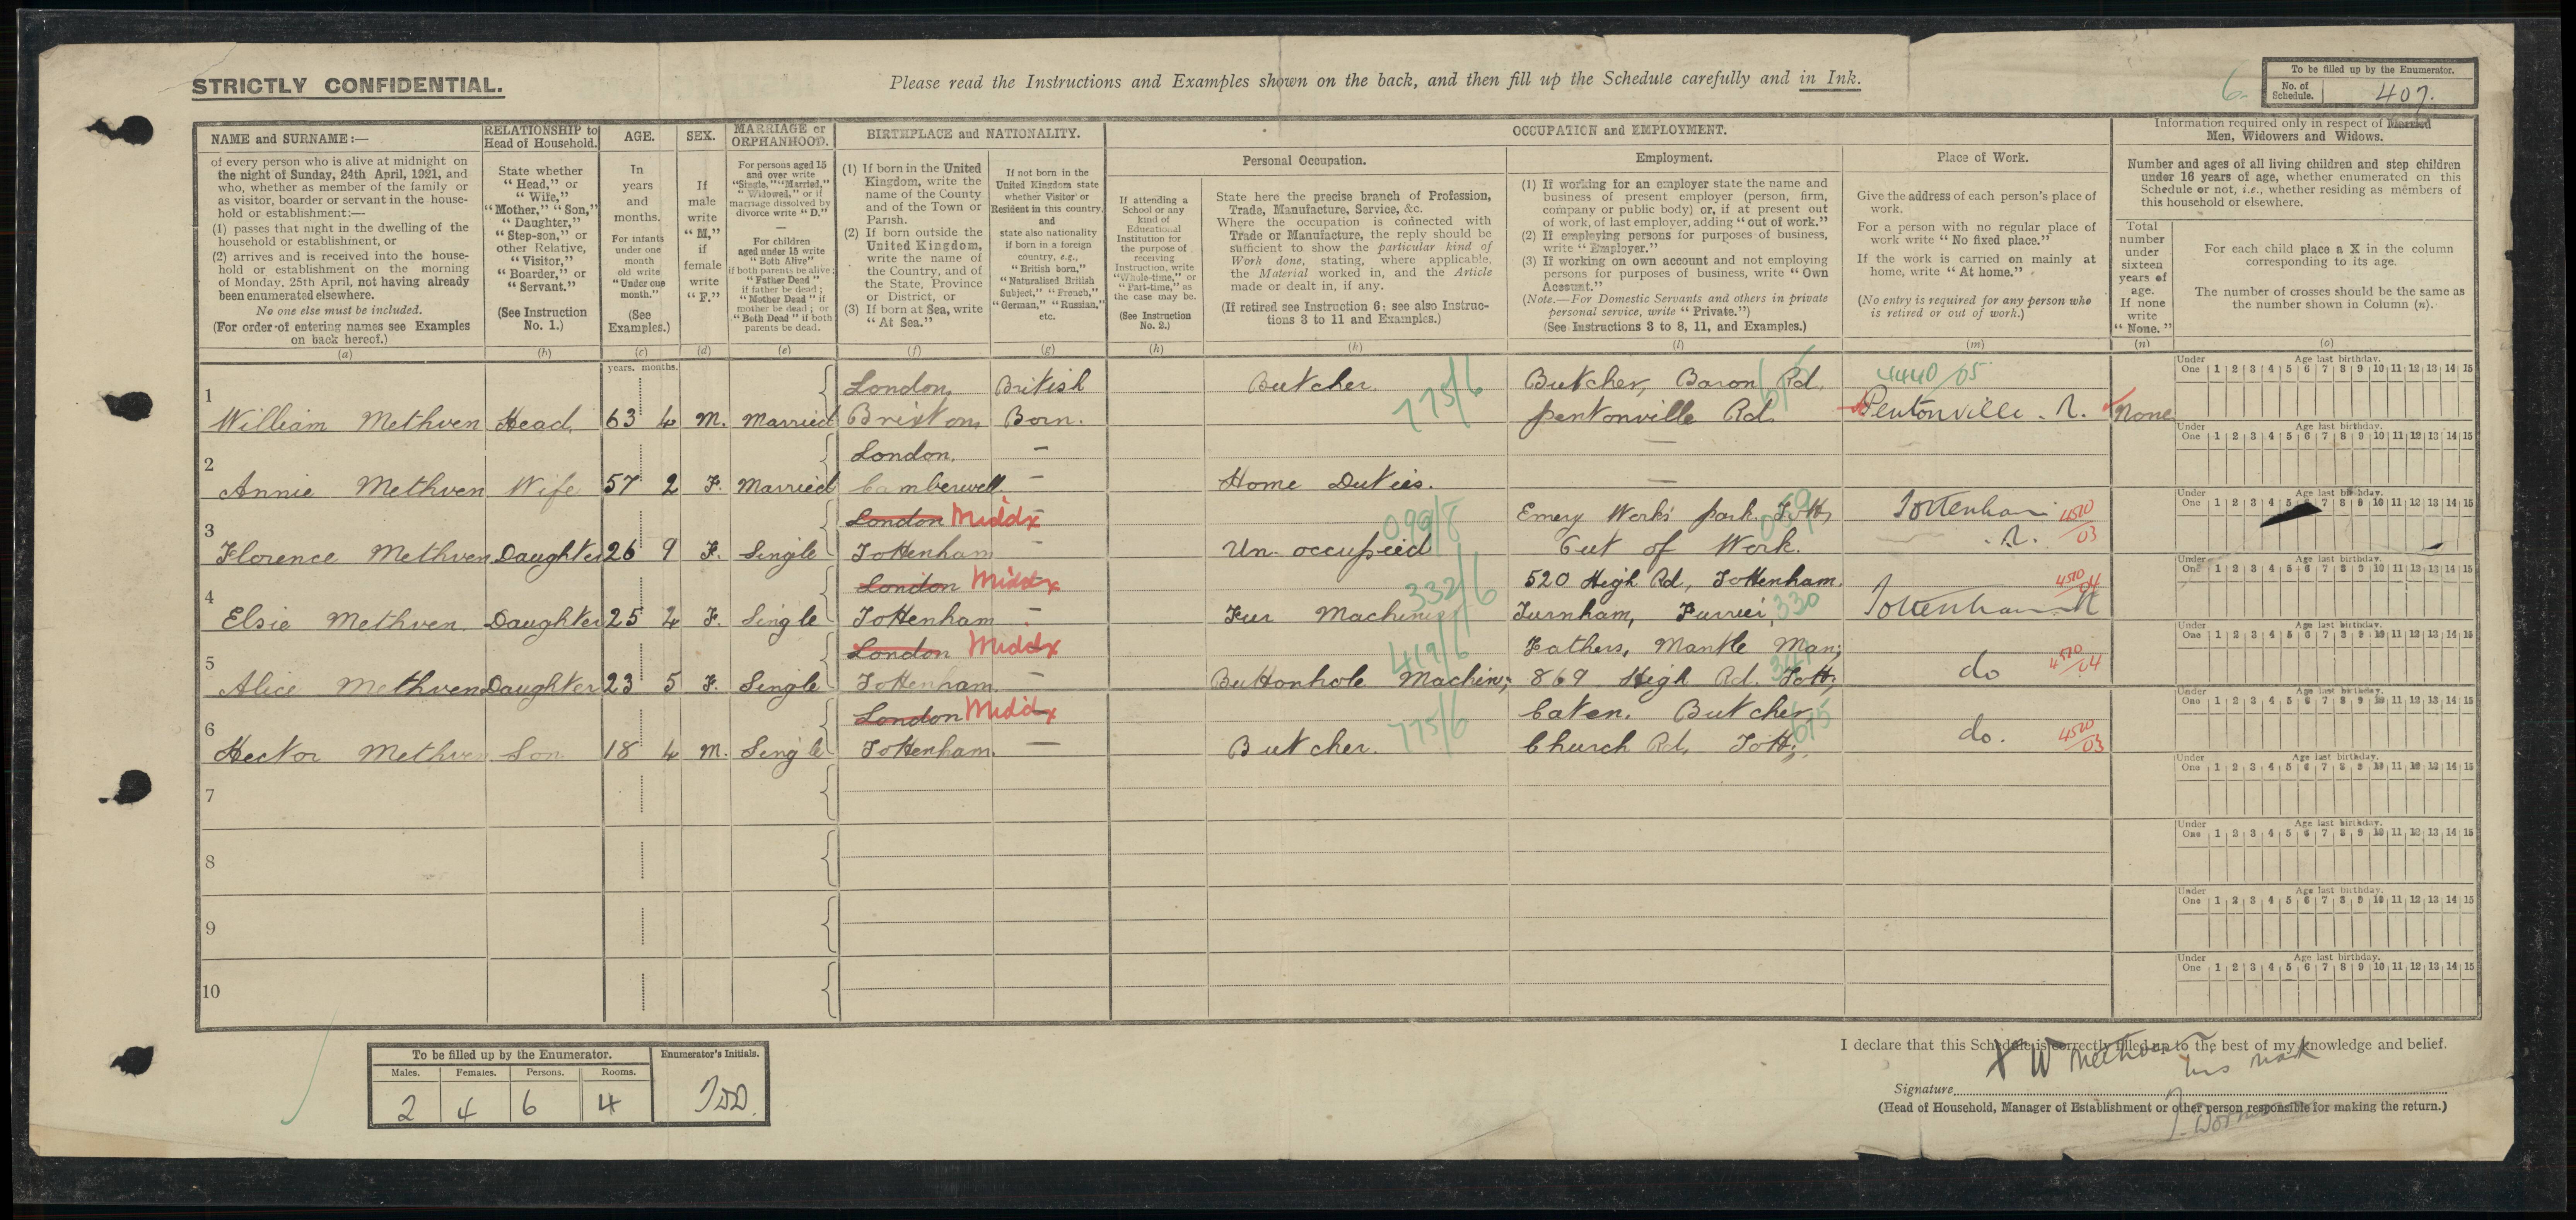 STRICTLY CONFIDENTIAL.
Please read the Instructions and Examples shown on the back, and then fill up the Schedule carefully and in Ink.
6.
To be filled up by the Enumerator.
No. of Schedule. 407.
NAME and SURNAME:—
of every person who is alive at midnight on
the night of Sunday, 24th April, 1921, and
who, whether as member of the family or
as visitor, boarder or servant in the house-
hold or establishment:—
(1) passes that night in the dwelling of the
household or establishment, or
(2) arrives and is received into the house-
hold or establishment on the morning
of Monday, 25th April, not having already
been enumerated elsewhere.
No one else must be included.
(For order of entering names see Examples
on back hereof.)
(a)
RELATIONSHIP to
Head of Household.
State whether
"Head," or
"Wife,"
"Mother," "Son,"
"Daughter,"
"Step-son," or
other Relative,
"Visitor,"
"Boarder," or
"Servant."
(See Instruction
No. 1.)
(b)
AGE.
In
years
and
months.
For infants
under one
month
old write
"Under one
month."
(See
Examples.)
(c)
years. months.
SEX.
If
male
write
"M,"
if
female
write
"F."
(d)
MARRIAGE or
ORPHANHOOD.
For persons aged 15
and over write
"Single," "Married,"
"Widowed," or if
marriage dissolved by
divorce write "D."
—
For children
aged under 15 write
"Both Alive"
if both parents be alive;
"Father Dead"
if father be dead;
"Mother Dead" if
mother be dead; or
"Both Dead" if both
parents be dead.
(e)
BIRTHPLACE and NATIONALITY.
(1) If born in the United
Kingdom, write the
name of the County
and of the Town or
Parish.
(2) If born outside the
United Kingdom,
write the name of
the Country, and of
the State, Province
or District, or
(3) If born at Sea, write
"At Sea."
(f)
If not born in the
United Kingdom state
whether Visitor or
Resident in this country,
and
state also nationality
if born in a foreign
country, e.g.,
"British born,"
"Naturalised British
Subject," "French,"
"German," "Russian,"
etc.
(g)
OCCUPATION and EMPLOYMENT.
If attending a
School or any
kind of
Educational
Institution for
the purpose of
receiving
Instruction, write
"Whole-time," or
"Part-time," as
the case may be.
(See Instruction
No. 2.)
(h)
Personal Occupation.
State here the precise branch of Profession,
Trade, Manufacture, Service, &c.
Where the occupation is connected with
Trade or Manufacture, the reply should be
sufficient to show the particular kind of
Work done, stating, where applicable,
the Material worked in, and the Article
made or dealt in, if any.
(If retired see Instruction 6; see also Instruc-
tions 3 to 11 and Examples.)
(k)
Employment.
(1) If working for an employer state the name and
business of present employer (person, firm,
company or public body) or, if at present out
of work, of last employer, adding "out of work."
(2) If employing persons for purposes of business,
write "Employer."
(3) If working on own account and not employing
persons for purposes of business, write "Own
Account."
(Note.—For Domestic Servants and others in private
personal service, write "Private.")
(See Instructions 3 to 8, 11, and Examples.)
(l)
Place of Work.
Give the address of each person's place of
work.
For a person with no regular place of
work write "No fixed place."
If the work is carried on mainly at
home, write "At home."
(No entry is required for any person who
is retired or out of work.)
(m)
Information required only in respect of Married
Men, Widowers and Widows.
Number and ages of all living children and step children
under 16 years of age, whether enumerated on this
Schedule or not, i.e., whether residing as members of
this household or elsewhere.
Total
number
under
sixteen
years of
age.
If none
write
"None."
(n)
For each child place a X in the column
corresponding to its age.
The number of crosses should be the same as
the number shown in Column (n).
(o)
Under One Age last birthday. 1 2 3 4 5 6 7 8 9 10 11 12 13 14 15
London, British Butcher. 775/6 Butcher, Baron Rd. 4440/05
1 William Methven Head. 63 4 M. Married Brixton, Born. pentonville Rd Pentonville. N. None
Under One Age last birthday. 1 2 3 4 5 6 7 8 9 10 11 12 13 14 15
London. —
2 Annie Methven Wife 57 2 F. Married Camberwell — Home Duties. —
Under One Age last birthday. 1 2 3 4 5 6 7 8 9 10 11 12 13 14 15
London Middx Emery Works park. Tott; Tottenham 4520/03
3 Florence Methven Daughter 26 9 F. Single Tottenham — Un-occupied Out of Work. N.
Under One Age last birthday. 1 2 3 4 5 6 7 8 9 10 11 12 13 14 15
London Middx 332/6 520 High Rd, Tottenham. 4520/04
4 Elsie Methven. Daughter 25 4 F. Single Tottenham — Fur Machinist Turnham, Furrier, 330 Tottenham N
Under One Age last birthday. 1 2 3 4 5 6 7 8 9 10 11 12 13 14 15
London Middx 419/6 Fathers, Mantle Man; 4520/04
5 Alice Methven Daughter 23 5 F. Single Tottenham. — Buttonhole Machin; 869 High Rd. Tott; do
Under One Age last birthday. 1 2 3 4 5 6 7 8 9 10 11 12 13 14 15
London Middx 775/6 Caten. Butcher, 675 4520/03
6 Hector Methven Son 18 4 M. Single Tottenham. — Butcher. Church Rd, Tott; do.
Under One Age last birthday. 1 2 3 4 5 6 7 8 9 10 11 12 13 14 15
7
Under One Age last birthday. 1 2 3 4 5 6 7 8 9 10 11 12 13 14 15
8
Under One Age last birthday. 1 2 3 4 5 6 7 8 9 10 11 12 13 14 15
9
Under One Age last birthday. 1 2 3 4 5 6 7 8 9 10 11 12 13 14 15
10
To be filled up by the Enumerator. Enumerator's Initials.
Males. Females. Persons. Rooms.
2 4 6 4
I declare that this Schedule is correctly filled up to the best of my knowledge and belief.
X W Methven his mark
Signature
(Head of Household, Manager of Establishment or other person responsible for making the return.)